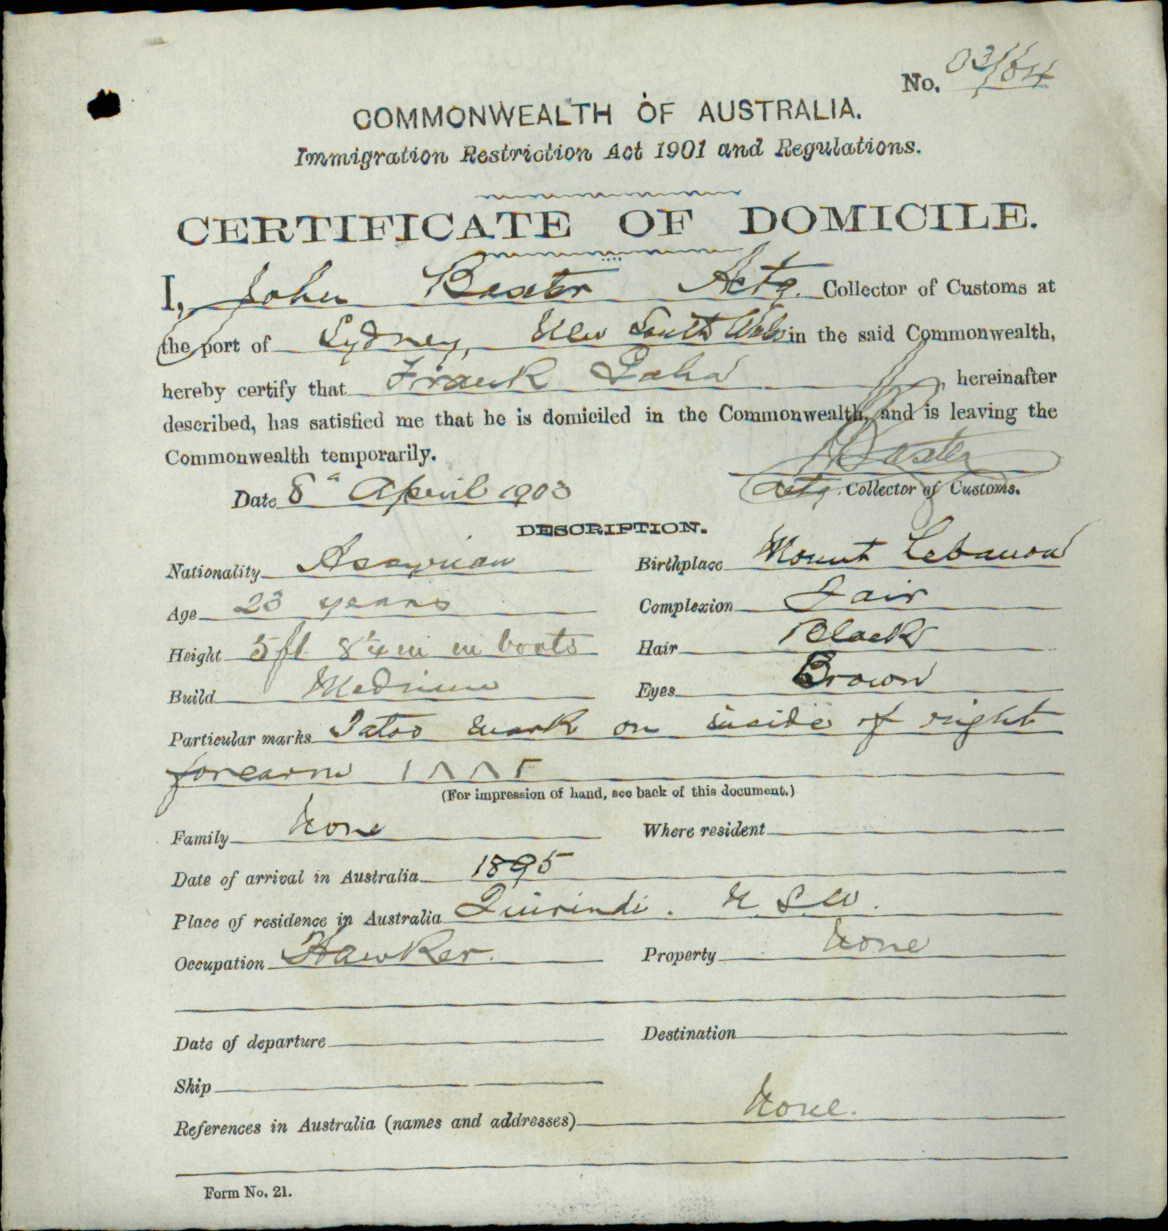 No. 03/64
COMMONWEALTH OF AUSTRALIA.
Immigration Restriction Act 1901 and Regulations.
CERTIFICATE OF DOMICILE.
I, John Baxter Actg. Collector of Customs at
the port of Sydney, New South Wales in the said Commonwealth,
hereby certify that Frank Gaha, hereinafter
described, has satisfied me that he is domiciled in the Commonwealth, and is leaving the
Commonwealth temporarily.
JBaxter
Date 8th April 1903 Actg. Collector of Customs.
DESCRIPTION.
Nationality Assyrian Birthplace Mount Lebanon
Age 23 years Complexion Fair
Height 5ft 8¼ in in boots Hair Black
Build Medium Eyes Brown
Particular marks Tatoo mark on inside of right
forearm
(For impression of hand, see back of this document.)
Family None Where resident
Date of arrival in Australia 1895
Place of residence in Australia Quirindi. N.S.W.
Occupation Hawker. Property None
Date of departure Destination
Ship
References in Australia (names and addresses) None.
Form No. 21.